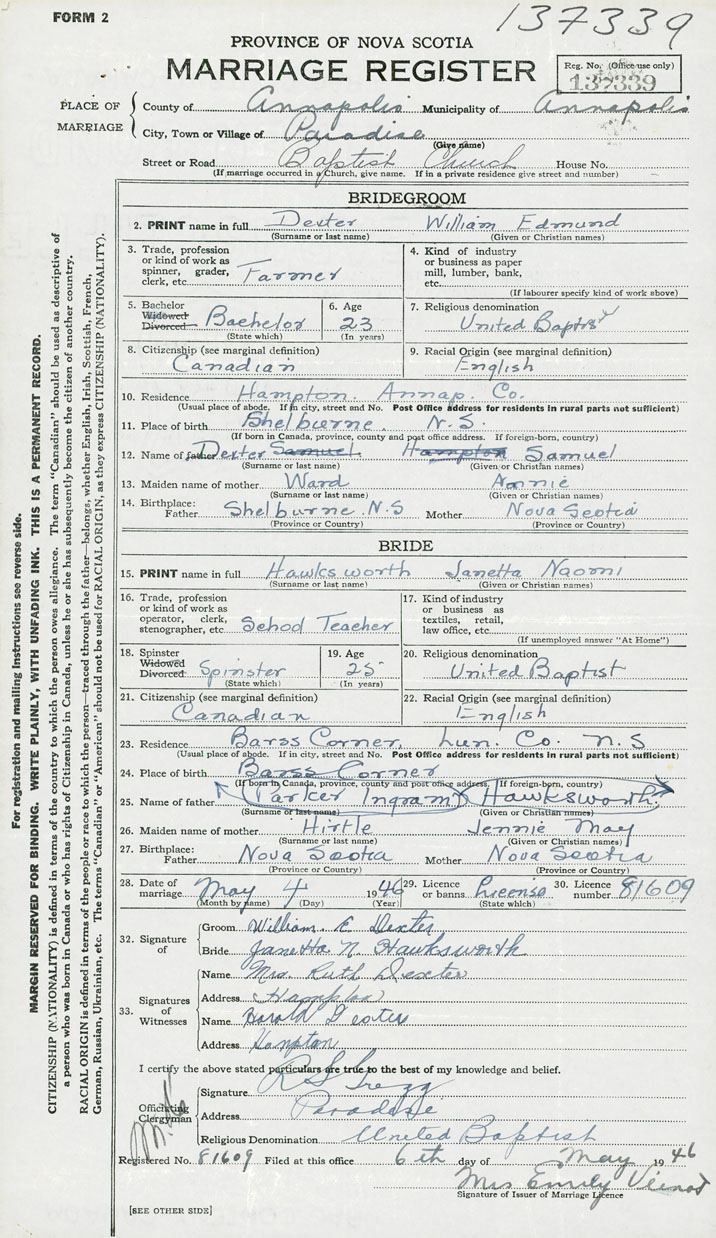 FORM 2
137339
PROVINCE OF NOVA SCOTIA
MARRIAGE REGISTER
Reg. No. (Office use only)
137339
PLACE OF MARRIAGE
County of Annapolis Municipality of Annapolis
City, Town or Village of Paradise
(Give name)
Street or Road Baptist Church House No.
(If marriage occurred in a Church, give name. If in a private residence give street and number)
BRIDEGROOM
2. PRINT name in full Dexter William Edmund
(Surname or last name) (Given or Christian names)
3. Trade, profession or kind of work as spinner, grader, clerk, etc. Farmer
4. Kind of industry or business as paper mill, lumber, bank, etc.
(If labourer specify kind of work above)
5. Bachelor Widowed Divorced Bachelor
(State which)
6. Age 23
(In years)
7. Religious denomination
United Baptist
8. Citizenship (see marginal definition)
Canadian
9. Racial Origin (see marginal definition)
English
10. Residence Hampton. Annap. Co.
(Usual place of abode. If in city, street and No. Post Office address for residents in rural parts not sufficient)
11. Place of birth Shelburne. N.S.
(If born in Canada, province, county and post office address. If foreign-born, country)
12. Name of father Dexter Samuel Hampton Samuel
(Surname or last name) (Given or Christian names)
13. Maiden name of mother Ward Annie
(Surname or last name) (Given or Christian names)
14. Birthplace: Father Shelburne N.S Mother Nova Scotia
(Province or Country) (Province or Country)
BRIDE
15. PRINT name in full Hawksworth Janetta Naomi
(Surname or last name) (Given or Christian names)
16. Trade, profession or kind of work as operator, clerk, stenographer, etc. School Teacher
17. Kind of industry or business as textiles, retail, law office, etc.
(If unemployed answer "At Home")
18. Spinster Widowed Divorced Spinster
(State which)
19. Age 25
(In years)
20. Religious denomination
United Baptist
21. Citizenship (see marginal definition)
Canadian
22. Racial Origin (see marginal definition)
English
23. Residence Barss Corner, Lun. Co. N.S
(Usual place of abode. If in city, street and No. Post Office address for residents in rural parts not sufficient)
24. Place of birth Barss Corner
(If born in Canada, province, county and post office address. If foreign-born, country)
25. Name of father Parker Ingram Hawksworth.
(Surname or last name) (Given or Christian names)
26. Maiden name of mother Hirtle Jennie May
(Surname or last name) (Given or Christian names)
27. Birthplace: Father Nova Scotia Mother Nova Scotia
(Province or Country) (Province or Country)
28. Date of marriage May 4 1946 29. Licence or banns License 30. Licence number 81609
(Month by name) (Day) (Year) (State which)
32. Signature of
Groom William E Dexter
Bride Janetta N. Hawksworth
33. Signatures of Witnesses
Name Mrs. Ruth Dexter
Address Hampton
Name Harold Dexter
Address Hampton
I certify the above stated particulars are true to the best of my knowledge and belief.
Officiating Clergyman
Signature R S Gregg
Address Paradise
Religious Denomination United Baptist
Registered No. 81609 Filed at this office 6th day of May 1946
Mrs Emily Veinot
Signature of Issuer of Marriage Licence
[SEE OTHER SIDE]
For registration and mailing instructions see reverse side.
MARGIN RESERVED FOR BINDING. WRITE PLAINLY, WITH UNFADING INK. THIS IS A PERMANENT RECORD.
CITIZENSHIP (NATIONALITY) is defined in terms of the country to which the person owes allegiance. The term "Canadian" should be used as descriptive of
a person who was born in Canada or who has rights of Citizenship in Canada, unless he or she has subsequently become the citizen of another country.
RACIAL ORIGIN is defined in terms of the people or race to which the person—traced through the father—belongs, whether English, Irish, Scottish, French,
German, Russian, Ukrainian, etc. The terms "Canadian" or "American" should not be used for RACIAL ORIGIN, as they express CITIZENSHIP (NATIONALITY).